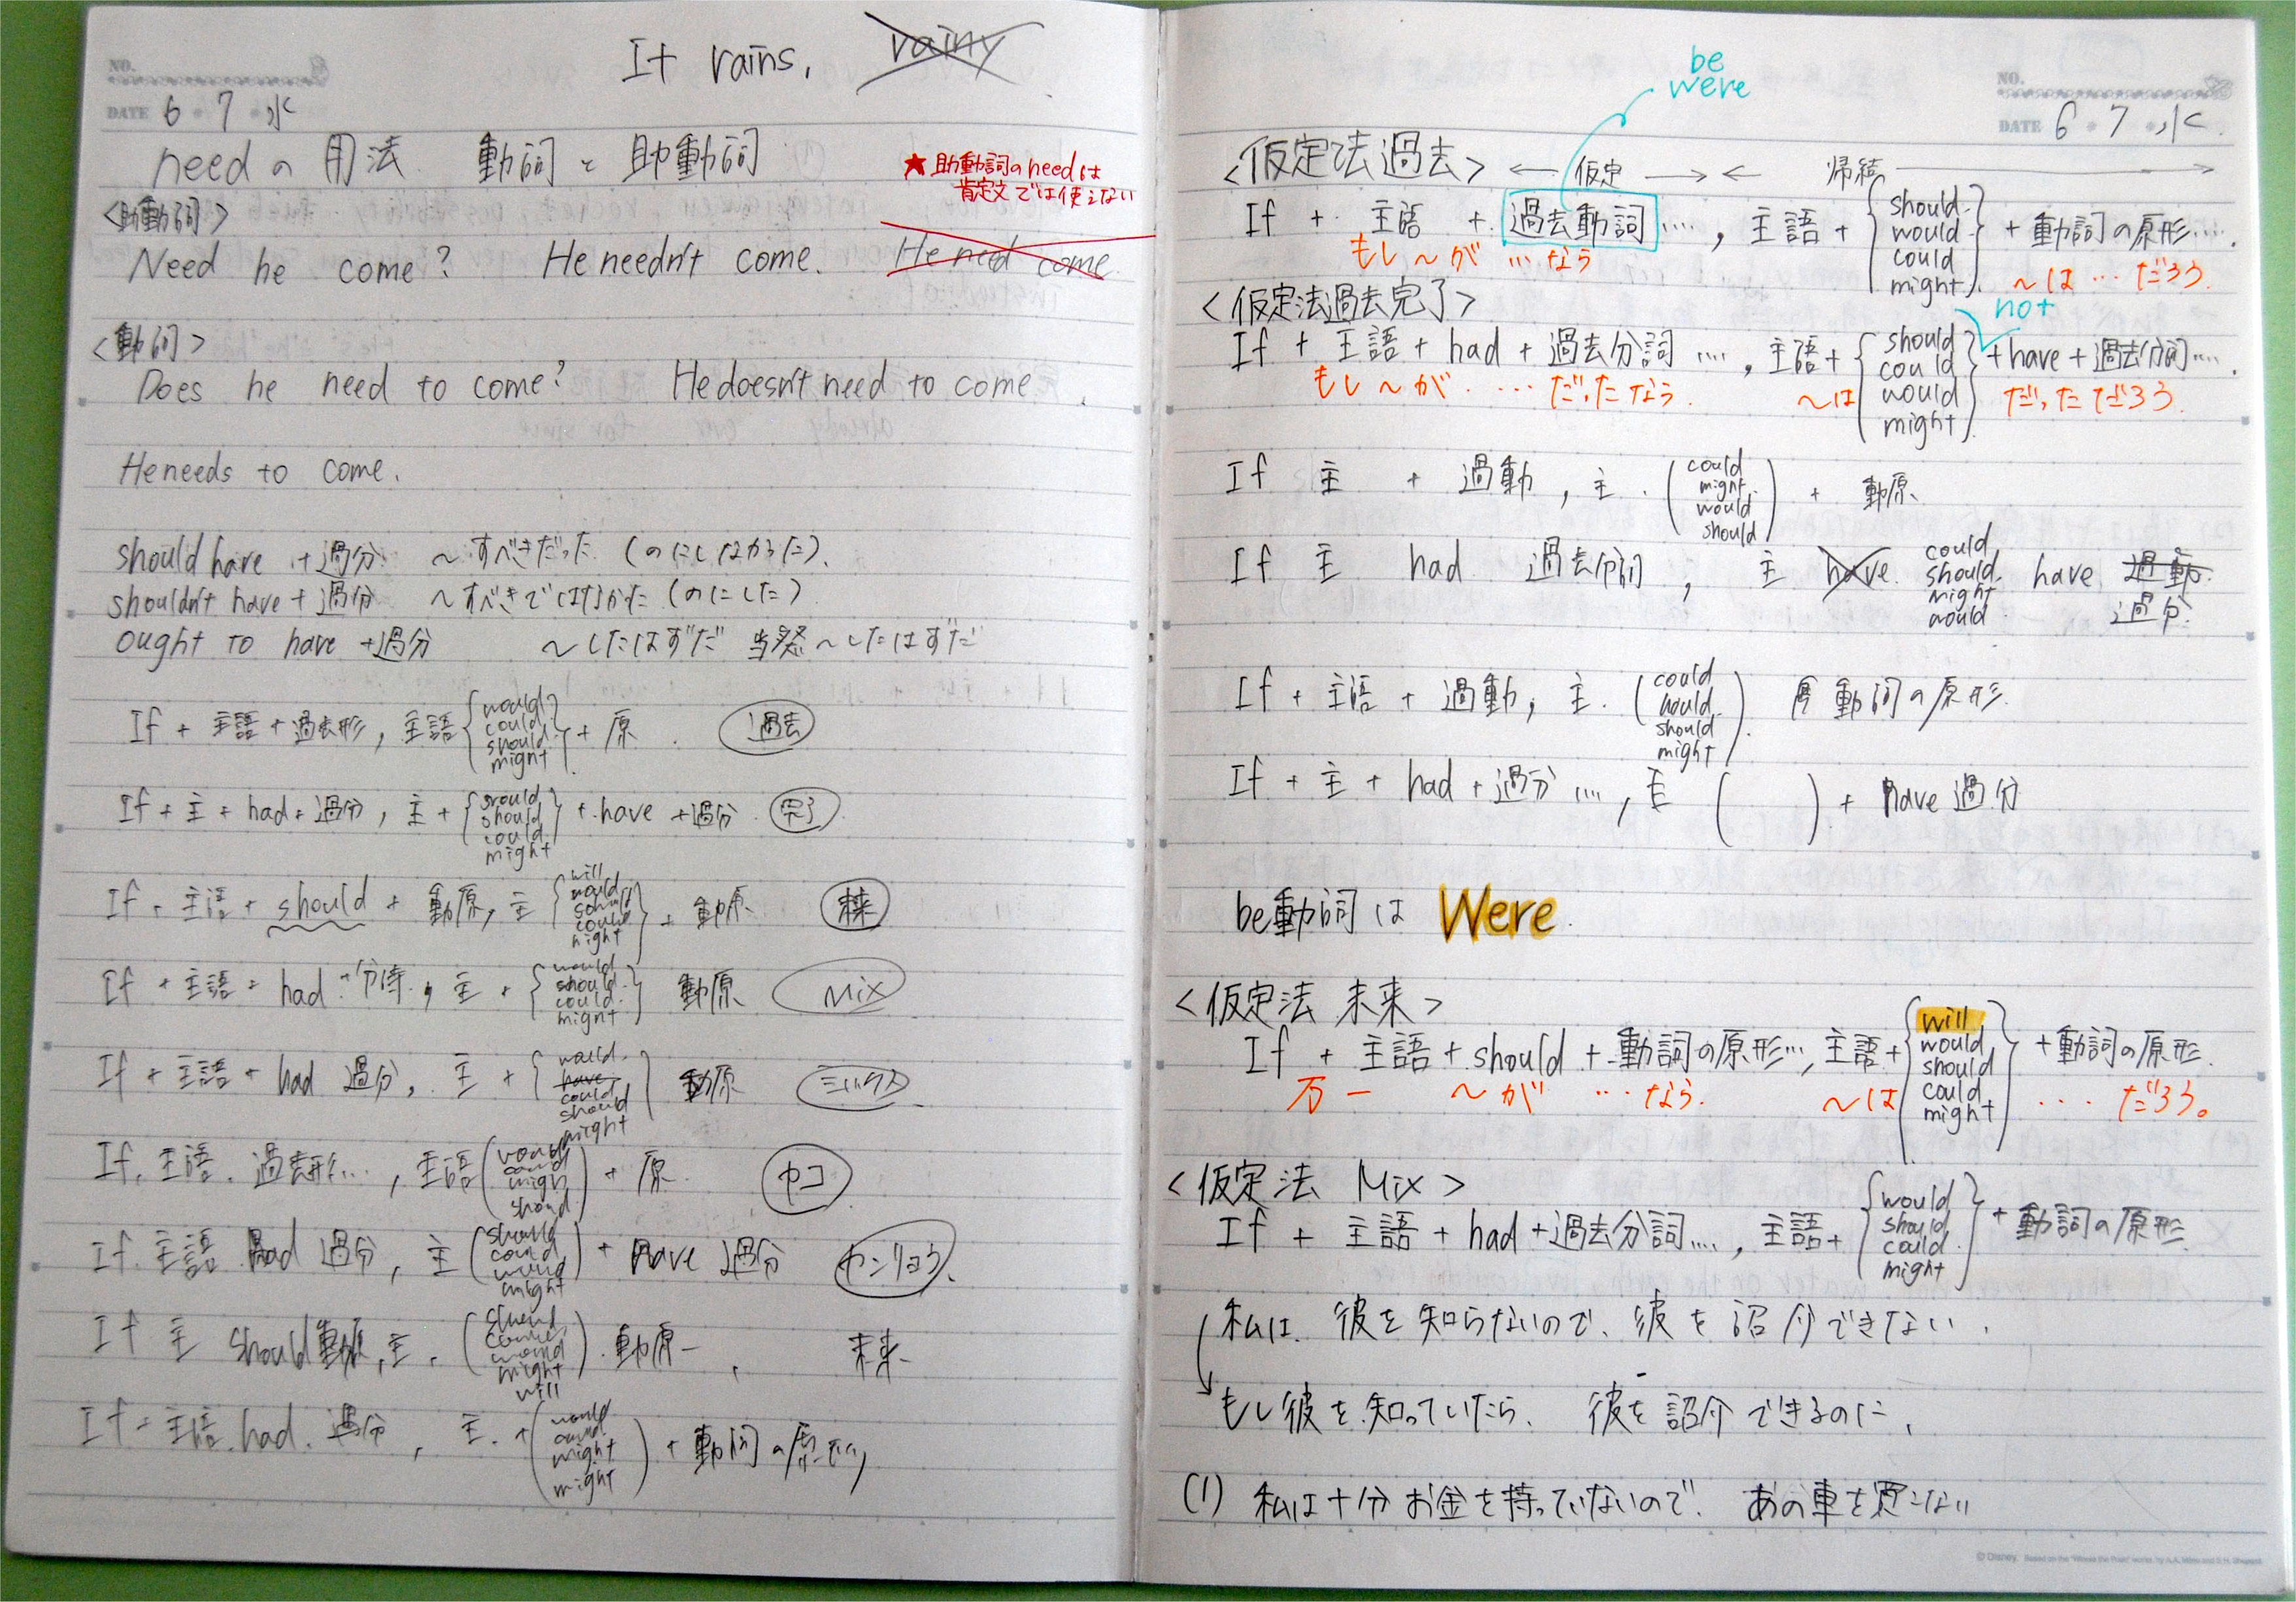 It rains, rainy
NO.
DATE 6・7・水
needの用法 動詞と助動詞
★助動詞のneedは
肯定文では使えない
<助動詞>
Need he come? He needn't come. He need come.
<動詞>
Does he need to come? He doesn't need to come.
He needs to come.
should have +過分 ~すべきだった (のにしなかった).
shouldn't have + 過分 ~すべきではなかった (のにした)
ought to have +過分 ~したはずだ 当然~したはずだ
If + 主語 + 過去形, 主語 { would could should might } + 原 過去
If + 主 + had + 過分, 主 + { would should could might } + have +過分 完了
If + 主語 + should + 動原, 主 { will would should could might } + 動原 未来
If + 主語 + had + 主 + { would should could might } 動原 Mix
If + 主語 + had 過分, 主 + { would have could should might } 動原 ミックス
If 主語 過去形…, 主語 ( would could might should ) + 原 カコ
If 主語 had 過分, 主 ( should could would might ) + have 過分 カンリョウ
If 主 should 動原, 主 ( should could would might will ) 動原 未来
If 主語 had 過分, 主 + ( would could might might ) + 動詞の原形
NO.
DATE 6・7・水
be
were
<仮定法過去> ← 仮定 → ← 帰結 →
If + 主語 + 過去動詞…, 主語 + { should would could might } + 動詞の原形….
もし~が …なら ~は … だろう.
<仮定法過去完了> not
If + 主語 + had + 過去分詞…, 主語 + { should could would might } + have + 過去分詞….
もし~が … だったなら. ~は だっただろう.
If 主 + 過動, 主 ( could might would should ) + 動原
If 主 had 過去分詞, 主 have could should might would have 過動
過分
If + 主語 + 過動, 主. ( could would should might ) 動詞の原形.
If + 主 + had + 過分…, 主 ( ) + have 過分
be動詞は Were.
<仮定法 未来>
If + 主語 + should + 動詞の原形…, 主語 + { will would should could might } + 動詞の原形.
万一 ~が …なら. ~は … だろう。
<仮定法 Mix>
If + 主語 + had + 過去分詞…, 主語 + { would should could might } + 動詞の原形.
私は、彼を知らないので、彼を紹介できない.
もし彼を知っていたら、彼を紹介できるのに、
(1) 私は十分お金を持っていないので、あの車を買えない
© Disney. Based on the "Winnie the Pooh" works, by A.A. Milne and E.H. Shepard.